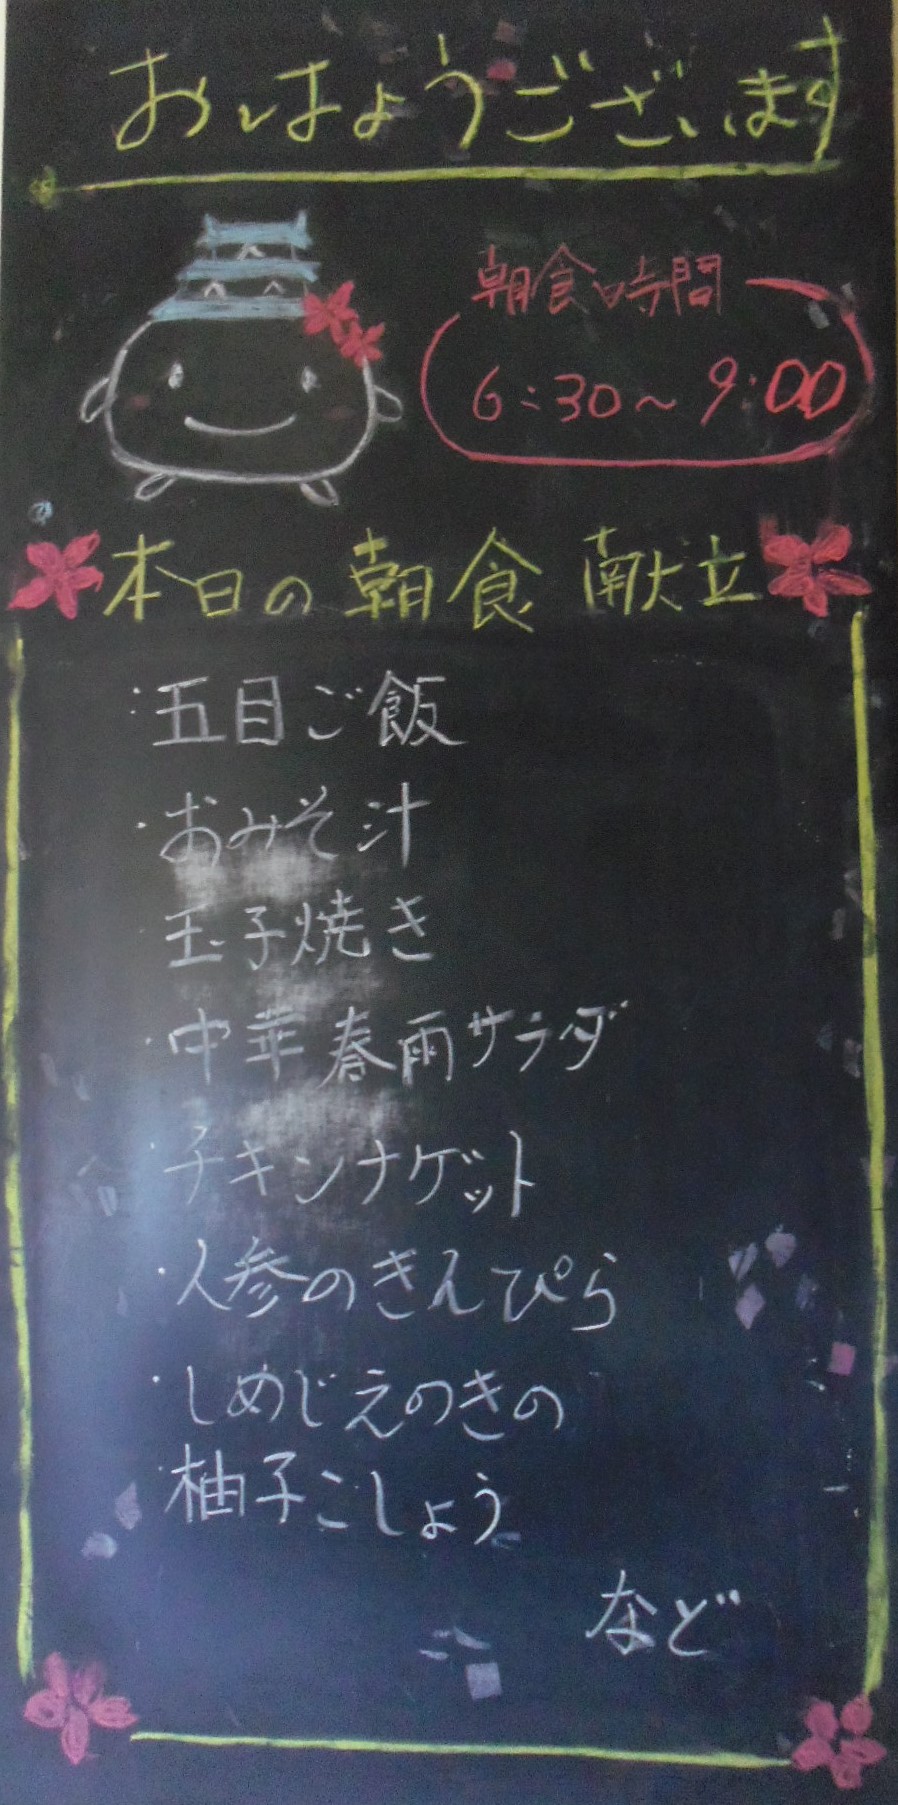 おはようございます
朝食時間
6:30~9:00
本日の朝食 献立
・五目ご飯
・おみそ汁
玉子焼き
・中華春雨サラダ
・チキンナゲット
・人参のきんぴら
・しめじえのきの
柚子こしょう
など